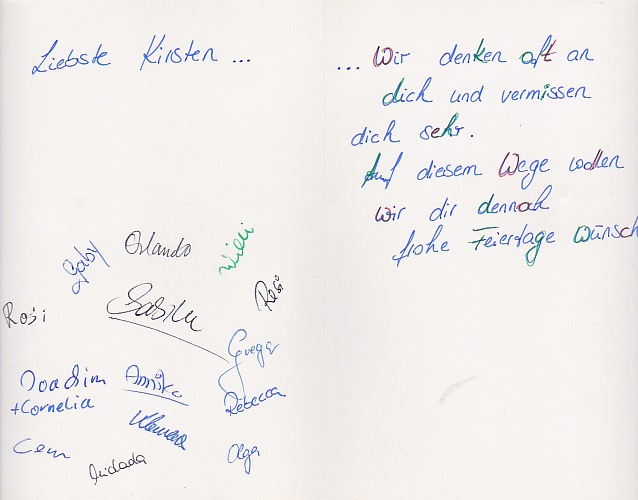 Liebste Kirsten ...
... Wir denken oft an
dich und vermissen
dich sehr.
Auf diesem Wege wollen
wir dir dennoch
frohe Feiertage wünsch
Gaby
Orlando
Willi
Rosi
Rosi
Gregor
Joachim
+Cornelia
Annika
Rebecca
Cem
Olga